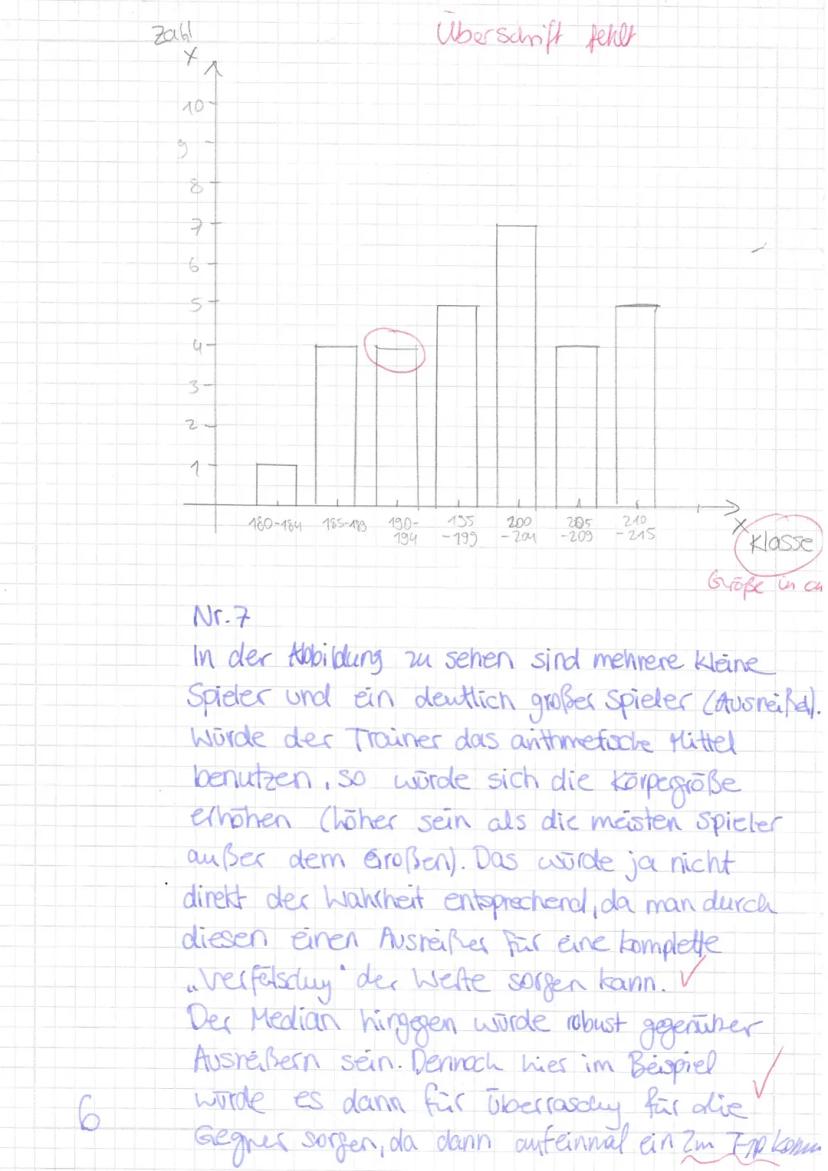 Zahl
Überschrift fehlt
x
10
9
8
7
6
5
4
3
2
1
180-184 185-189 190-194 195-199 200-204 205-209 210-215
x
Klasse
Größe in cm
Nr. 7
In der Abbildung zu sehen sind mehrere kleine
Spieler und ein deutlich großer Spieler (Ausreißer).
Würde der Trainer das arithmetische Mittel
benutzen, so würde sich die Körpegröße
erhöhen (höher sein als die meisten Spieler
außer dem Großen). Das würde ja nicht
direkt der Wahrheit entsprechend, da man durch
diesen einen Ausreißer für eine komplette
„Verfälschung" der Werte sorgen kann.
Der Median hingegen würde robust gegenüber
Ausreißern sein. Dennoch hier im Beispiel
würde es dann für Überraschung für die
6
Gegner sorgen, da dann aufeinmal ein 2m Typ